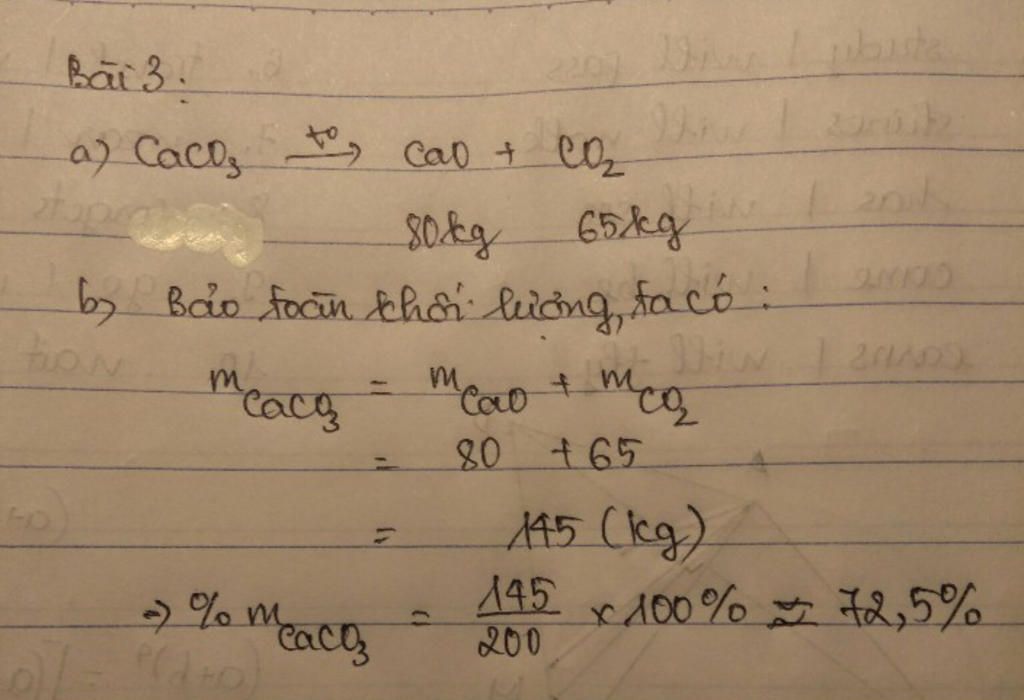 Bài 3:
a) CaCO₃ —t°→ CaO + CO₂
80kg 65kg
b) Bảo toàn khối lượng, ta có:
m CaCO₃ = m CaO + m CO₂
= 80 + 65
= 145 (kg)
⇒ % m CaCO₃ = 145/200 × 100% ≈ 72,5%